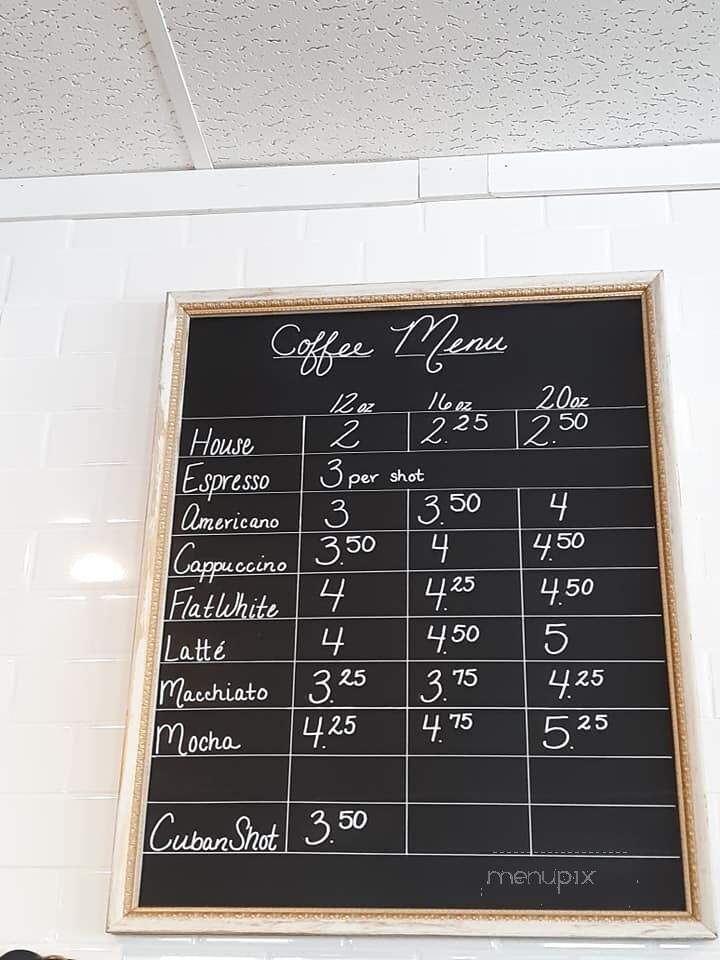 Coffee Menu
12 oz 16 oz 20 oz
House 2 2.25 2.50
Espresso 3 per shot
Americano 3 3.50 4
Cappuccino 3.50 4 4.50
Flat White 4 4.25 4.50
Latté 4 4.50 5
Macchiato 3.25 3.75 4.25
Mocha 4.25 4.75 5.25
Cuban Shot 3.50
menupix